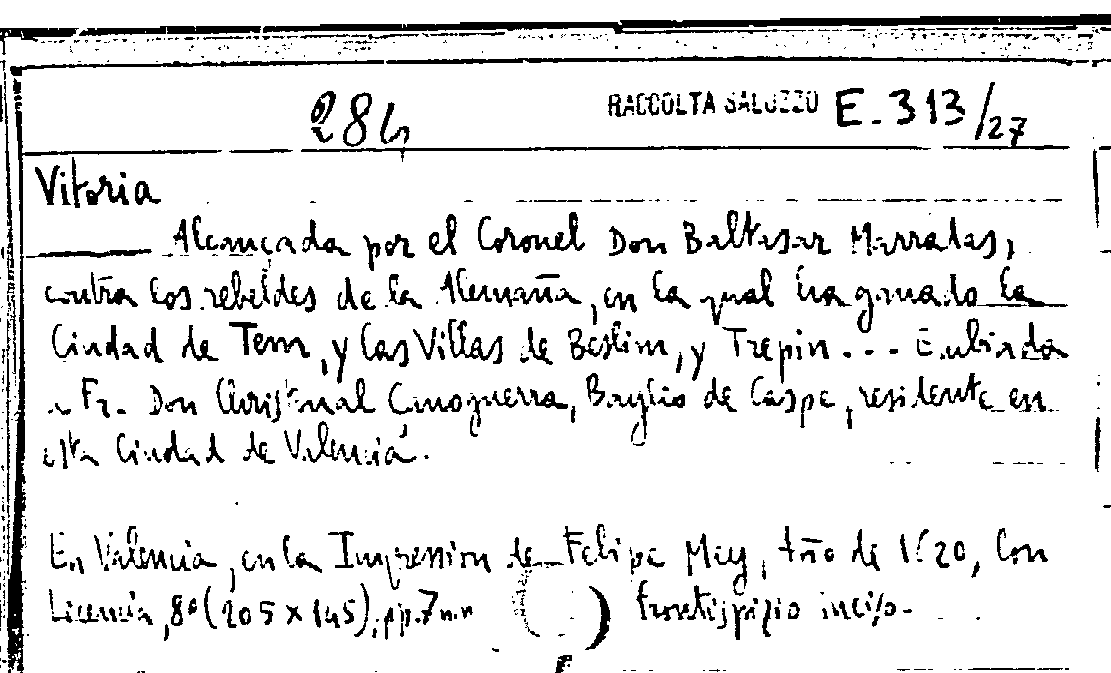 284 RACCOLTA SALUZZO E. 313/27
Vitoria
Alcançada por el Coronel Don Baltasar Marradas,
contra los rebeldes de la Alemaña, en la qual ha ganado la
Ciudad de Tem, y las Villas de Beslim, y Trepin... Embiada
a Fr. Don Christoual Çanoguerra, Baylio de Caspe, residente en
esta Ciudad de Valencia.
En Valencia, en la Impression de Felipe Mey, Año de 1620, Con
Licencia, 8° (205 x 145), pp. 7 n.n ( ) frontispizio inciso.